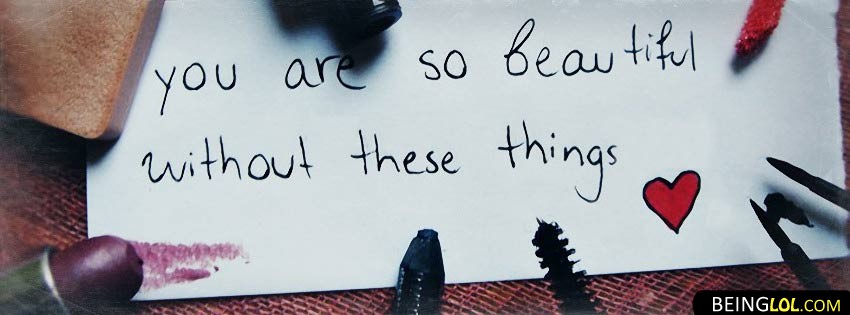 you are so beautiful
without these things
BEINGLOL.COM